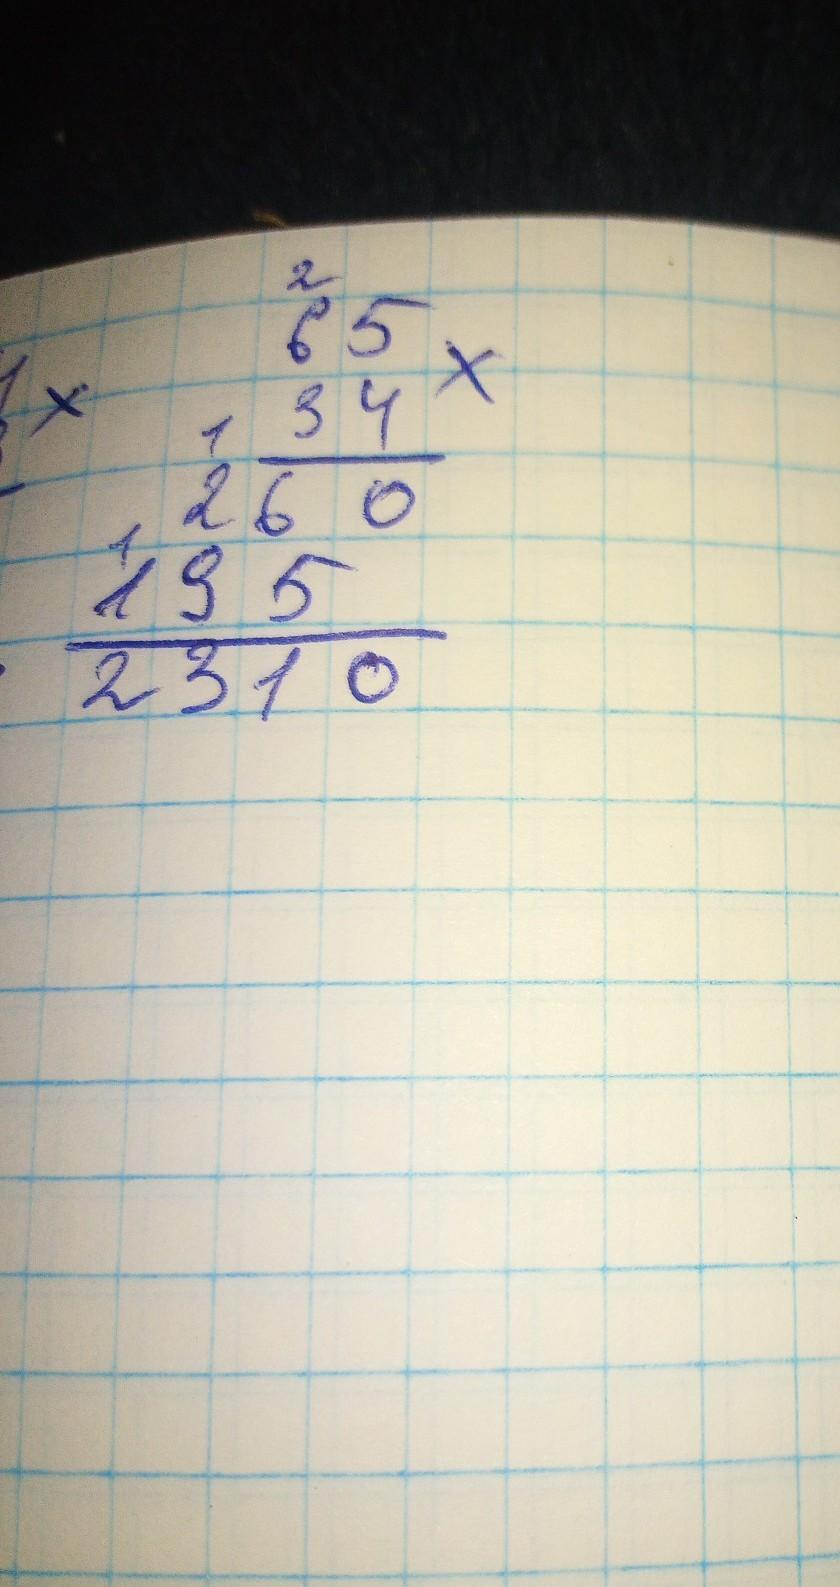 2
65
x
34 x
1
260
1
195
2310